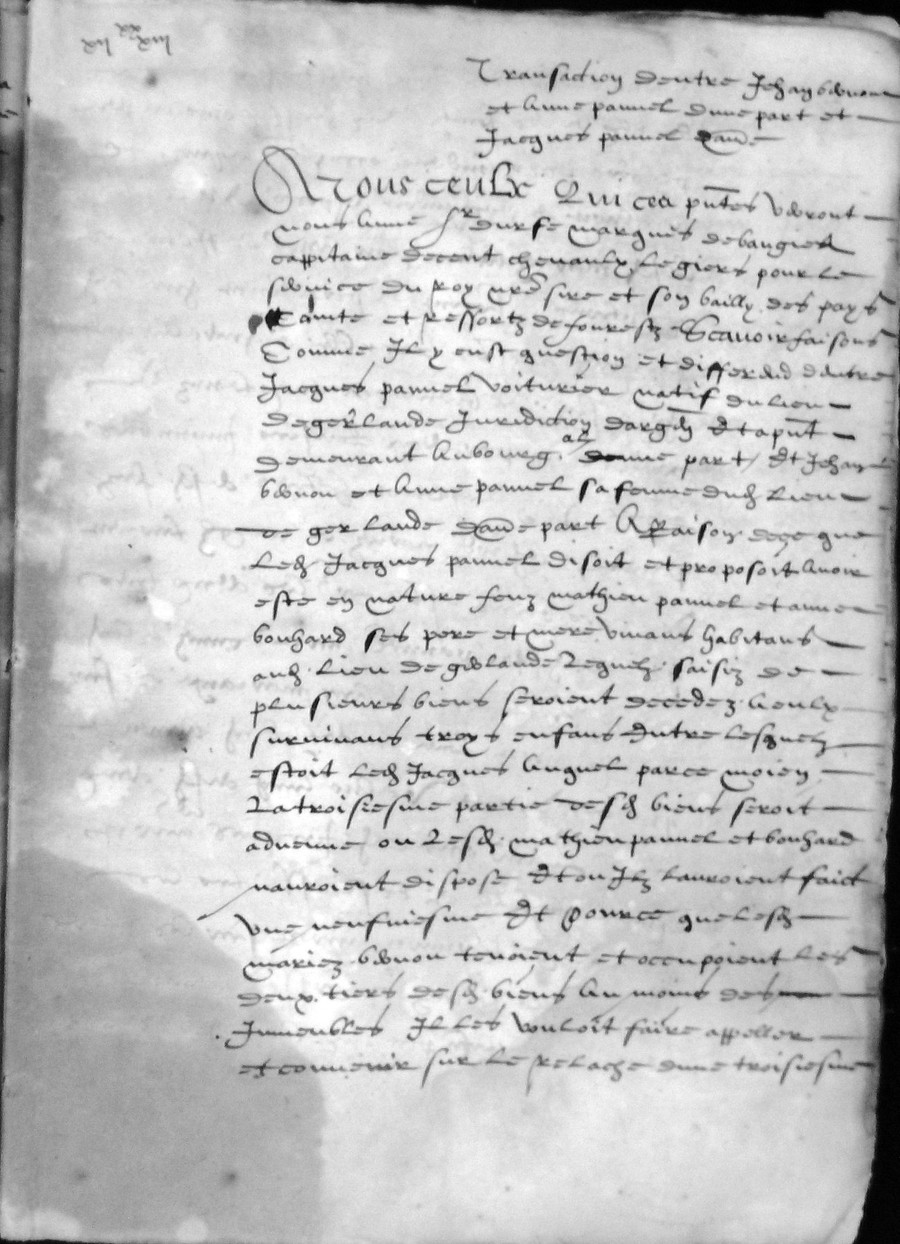 Transaction dentre Jehan bduon
et Anne pannel dune part et
Jacques pannel dau͞e
A Tous ceulx Qui ces pn͞tes verront
nous Anne sr durfe marquis de baugier
cappitaine de cent chevaulx legiers pour le
service du roy nr͞e sire et son bailly des pays
Comte et ressortz de fourestz Scavoir faisons
Comme Il y eust question et differend dentre
Jacques pannel voiturier natif du lieu
de gerlande Juridiction dargen͞t Et a pn͞t
demeurant Au bourg dune part Et Jehan
bduon et Anne pannel sa femme dud lieu
de gerlande dau͞e part A Raison de ce que
led Jacques pannel disoit et proposoit Avoir
este en nature feuz mathieu pannel et anne
bouhard ses pere et mere vivans habitans
aud lieu de gerlande Lesquelz saisiz de
plusieurs biens seroient decedez A eulx
survivans troys enfans Entre lesquelz
estoit led Jacques Auquel par ce moien
La troisiesme partie desd biens seroit
advenue ou Lesd mathieu pannel et bouhard
nauroient dispose Et ou Ilz lauroient faict
vne neufviesme Et Pource que lesd
mariez bduon tenoient et occupoient les
deux tiers desd biens Au moins des
Immeubles Il les vouloit faire appeller
et convenir sur le relache dune troisiesme